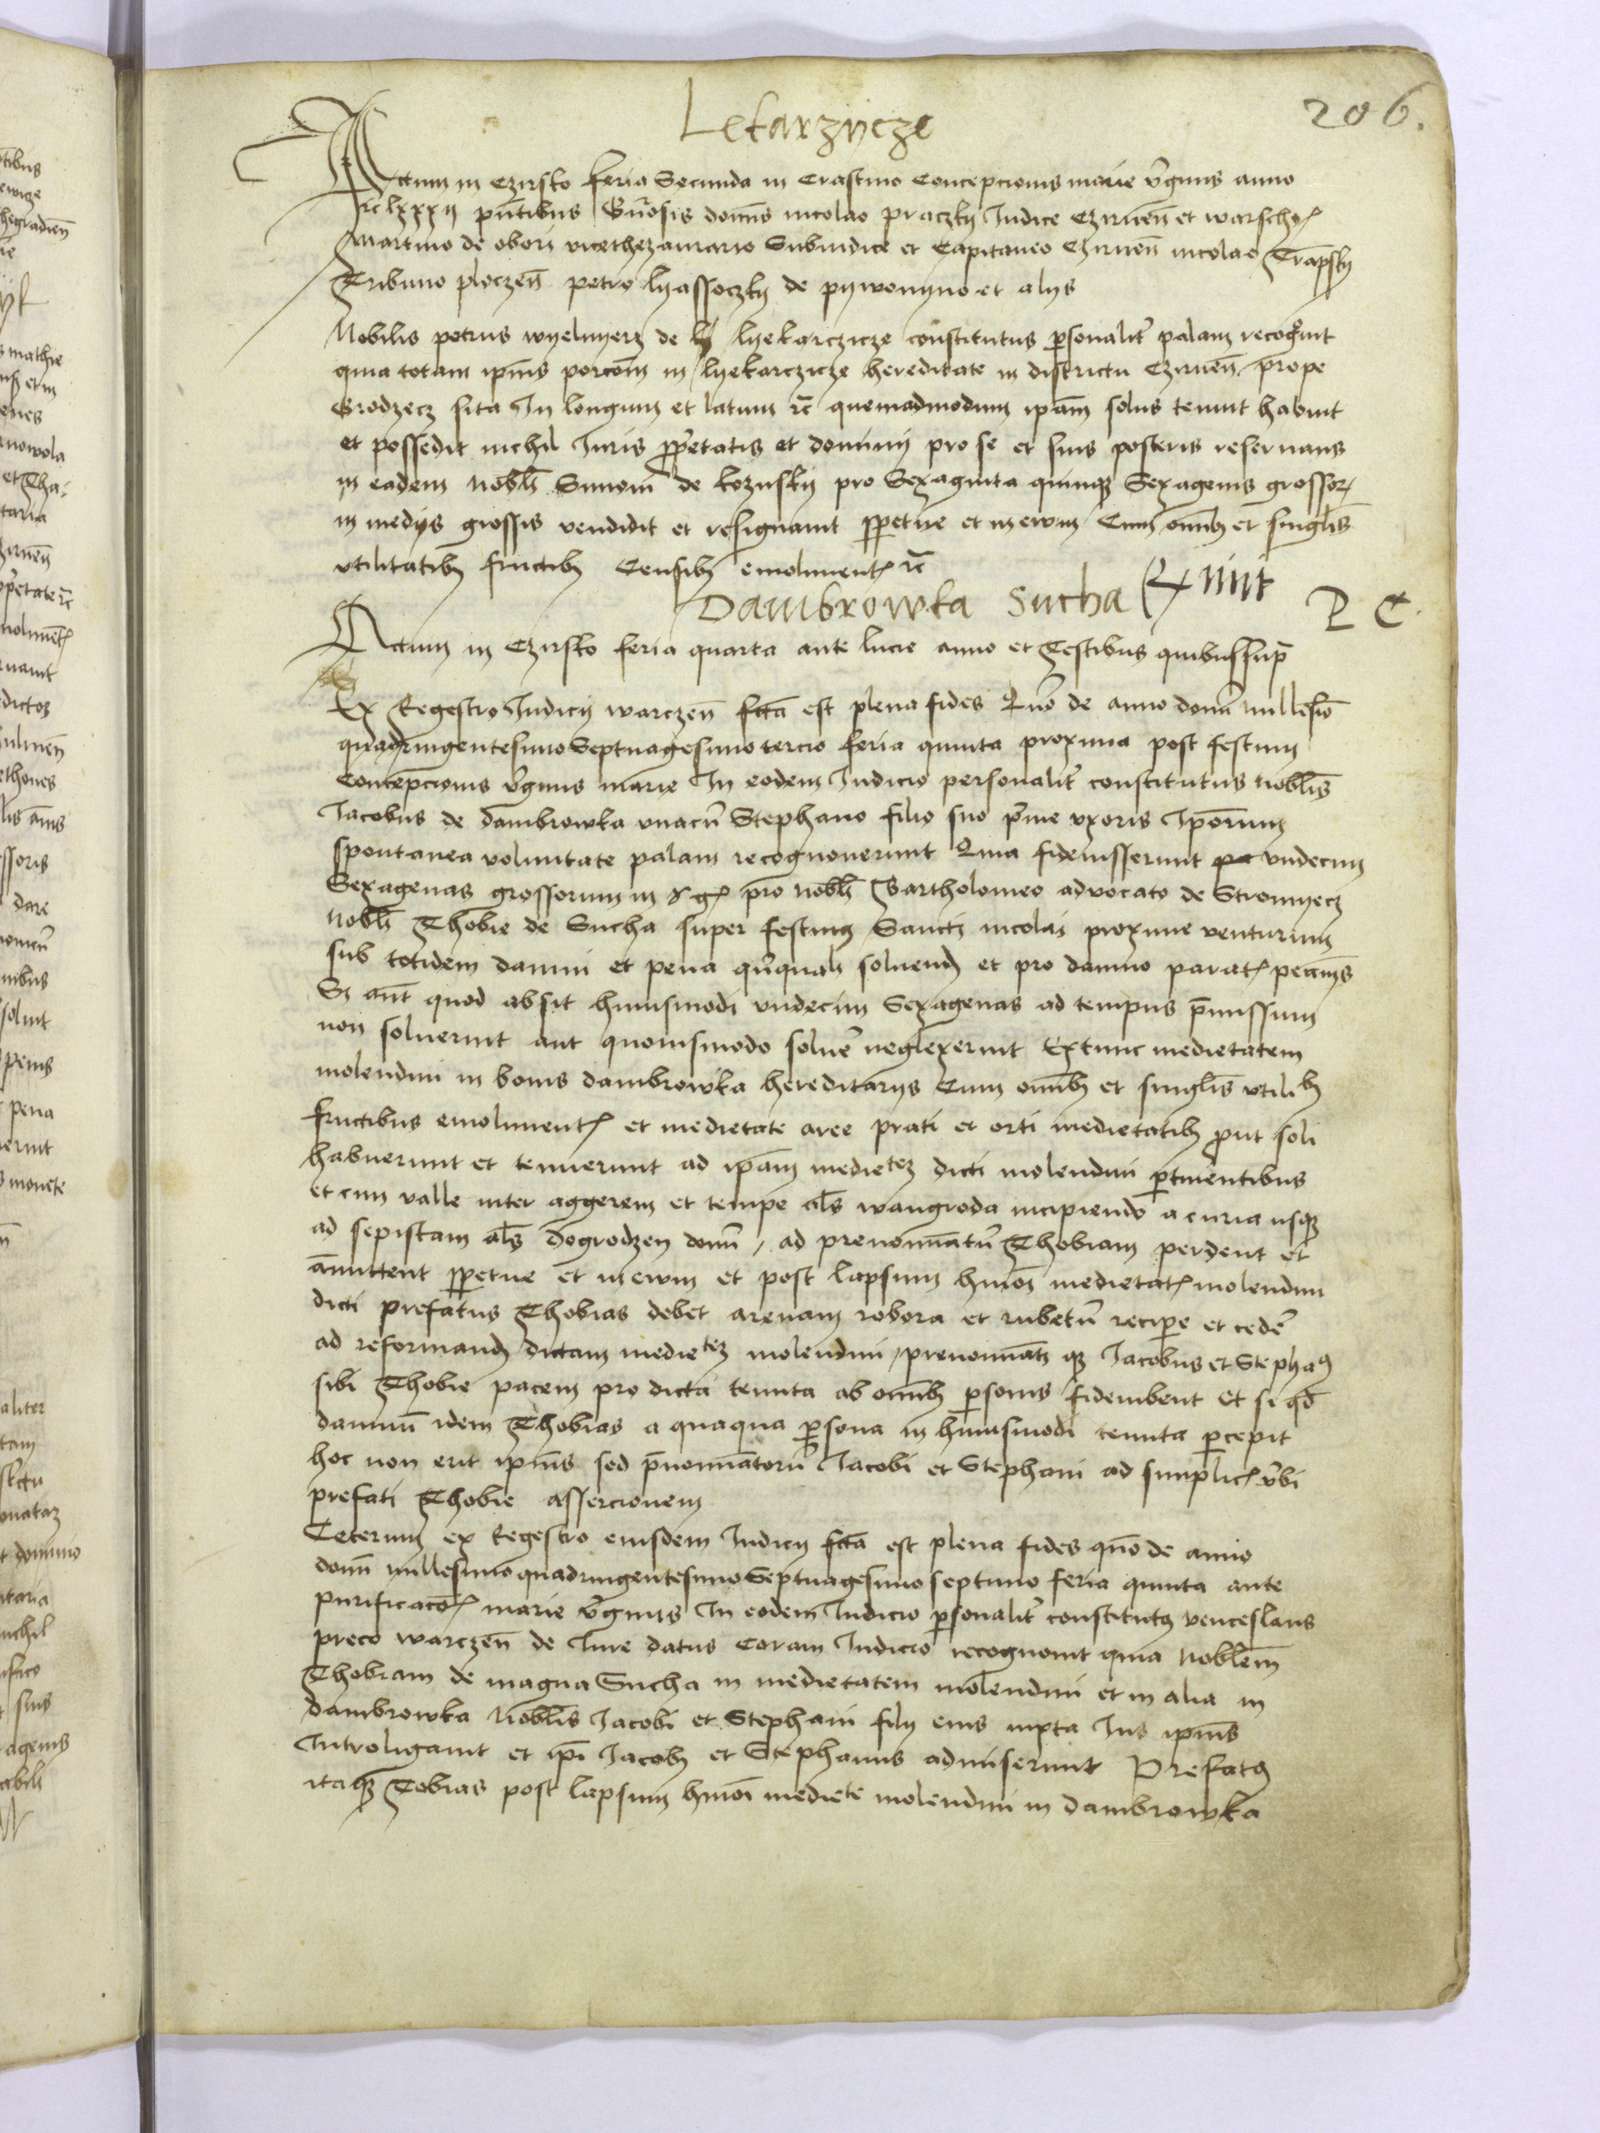 206.
Lekarzycze
Actum in Czirsko feria Secunda in Crastino Concepcionis marie v̄ginis anno
rc̄ lxxxij pn̄tibus Gn̄osis domīs nicolao praczky Judice Czirnen̄ et warscho
Martino de obori vicethezaurario Subiudice et Capitaneo Czirnen̄ nicolao Trapsky
Tribuno ploczen̄ petro lyassoczky de pywonyno et alys
Nobilis petrus wyelmyerz de lyekarczicze constitutus ꝑsonalit̄ palam recogͦuit
quia totam ip̄ius porcōem in lyekarczicze hereditate in districtu Czirnen̄ prope
Grodzecz sita In longum et latum rc̄ quemadmodum ip̄am solus tenuit habuit
et possedit nichil Juris ꝓprietatis et dominij pro se et suis posteris reseruans
in eadem nobl̄i Simoni de kozusky pro Sexaginta quinqꝫ Sexagenis grossor
in medijs grossis vendidit et resignauit ꝑpetue et in ewm Cum om̄ibꝫ et singl̄is
vtilitatibꝫ fructibꝫ Censibꝫ emoliment rc̄
Dambrowka Sucha
P C
Actum in Czirsko feria quarta ante lucie anno et Testibus quibus supͣ
Ex Regestro Judicij warczen̄ fct̄a est plena fides Quō de anno domī millesīo
quadringentesimo Septuagesimo tercio feria quinta proxima post festum
Concepcionis v̄ginis marie In eodem Judicio personalit̄ constitutus nobl̄is
Jacobus de dambrowka vnacū Stephano filio suo p̄me vxoris Ip̄orum
spontanea voluntate palam recognouerunt Quia fideiusserunt vndecim
Sexagenas grossorum in g pro nobl̄i Bartholomeo advocato de Stromyecz
nobl̄i Thobie de Sucha super festum Sancti nicolai proxime venturum
sub totidem damni et pena soluend et pro damno parat pecunijs
Si aūt quod absit huiusmodi vndecim Sexagenas ad tempus p̄missum
non soluerint aut quouismodo soluē neglexerint Extunc medietatem
molendini in bonis dambrowka hereditarijs Cum om̄ibꝫ et singl̄is vtilibꝫ
fructibus emoliment et medietate aree prati et orti medietatibꝫ ꝓut soli
habuerunt et tenuerunt ad ip̄am medietez dicti molendini ꝑtinentibus
et cum valle inter aggerem et tempe al̄s wangroda incipiendo a curia usqꝫ
ad sepistam al̄s dogrodzen domū, ad prenominatū Thobiam perdent et
amittent ꝑpetue et in ewm et post lapsum hmōi medietat molendini
dicti prefatus Thobias debet arenam robora et rubetū recipe et cedē
ad reformand dictam medietez molendini, prenominati qꝫ Jacobus et Stephaꝯ
sibi Thobie pacem pro dicta tenuta ab om̄ibꝫ ꝑsonis fideiubent Et si qd̄
damnū idem Thobias a quaqua ꝑsona in huiusmodi tenuta ꝑcepit
hoc non erit ip̄ius sed p̄nominatorū Jacobi et Stephani ad simplic v̄bi
prefati Thobie assercionem
Ceterum ex Regestro eiusdem Judicij fct̄a est plena fides quō de anno
domī millesimo quadringentesimo Septuagesimo septimo feria quinta ante
purificacōꝭ marie v̄ginis In eodem Judicio ꝑsonalit̄ constitutꝯ venceslaus
preco warczen̄ de Jure datus Coram Judicio recognouit quia nobl̄em
Thobiam de magna Sucha in medietatem molendini et in alia in
dambrowka nobl̄is Jacobi et Stephani filij eius iuxta Jus ip̄ius
Introligauit et ip̄i Jacobꝯ et Stephanus admiserunt Prefatꝯ
itaqꝫ Tobias post lapsum hmōi mediete molendini in dambrowka